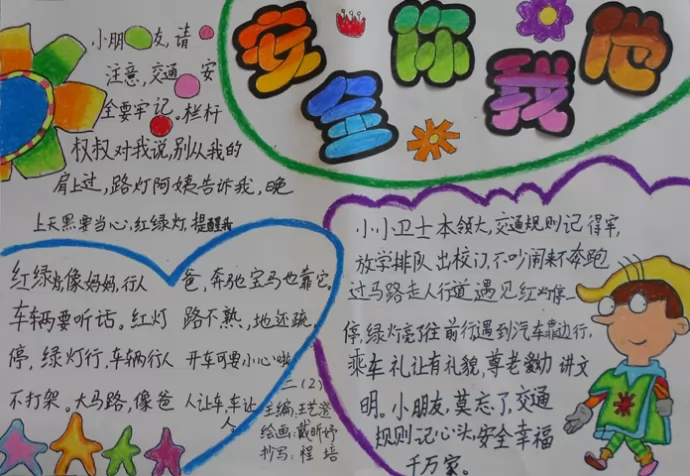 安全你我他
小朋友,请
注意,交通安
全要牢记。栏杆
权权对我说,别从我的
肩上过,路灯阿姨告诉我,晚
上天黑要当心,红绿灯,提醒我
红绿灯像妈妈,行人
车辆要听话。红灯
停,绿灯行,车辆行人
不打架。大马路,像爸
爸,奔驰宝马也靠它。
路不熟,地还疏。
开车可要小心啦
人让车,车让
人
二(2)
主编:王艺澄
绘画:戴昕妤
抄写:程培
小小卫士本领大,交通规则记得牢,
放学排队出校门,不吵闹来不奔跑
过马路走人行道遇见红灯停一
停,绿灯亮了往前行遇到汽车靠边行,
乘车礼让有礼貌,尊老爱幼讲文
明。小朋友,莫忘了,交通
规则记心头,安全幸福
千万家。